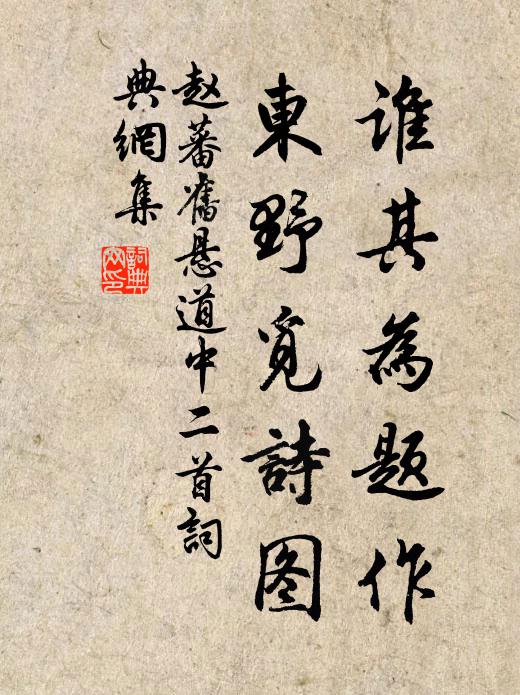 谁其為题作
東野覓詩图
赵蕃舊悬道中二首詞
典網集
詞典